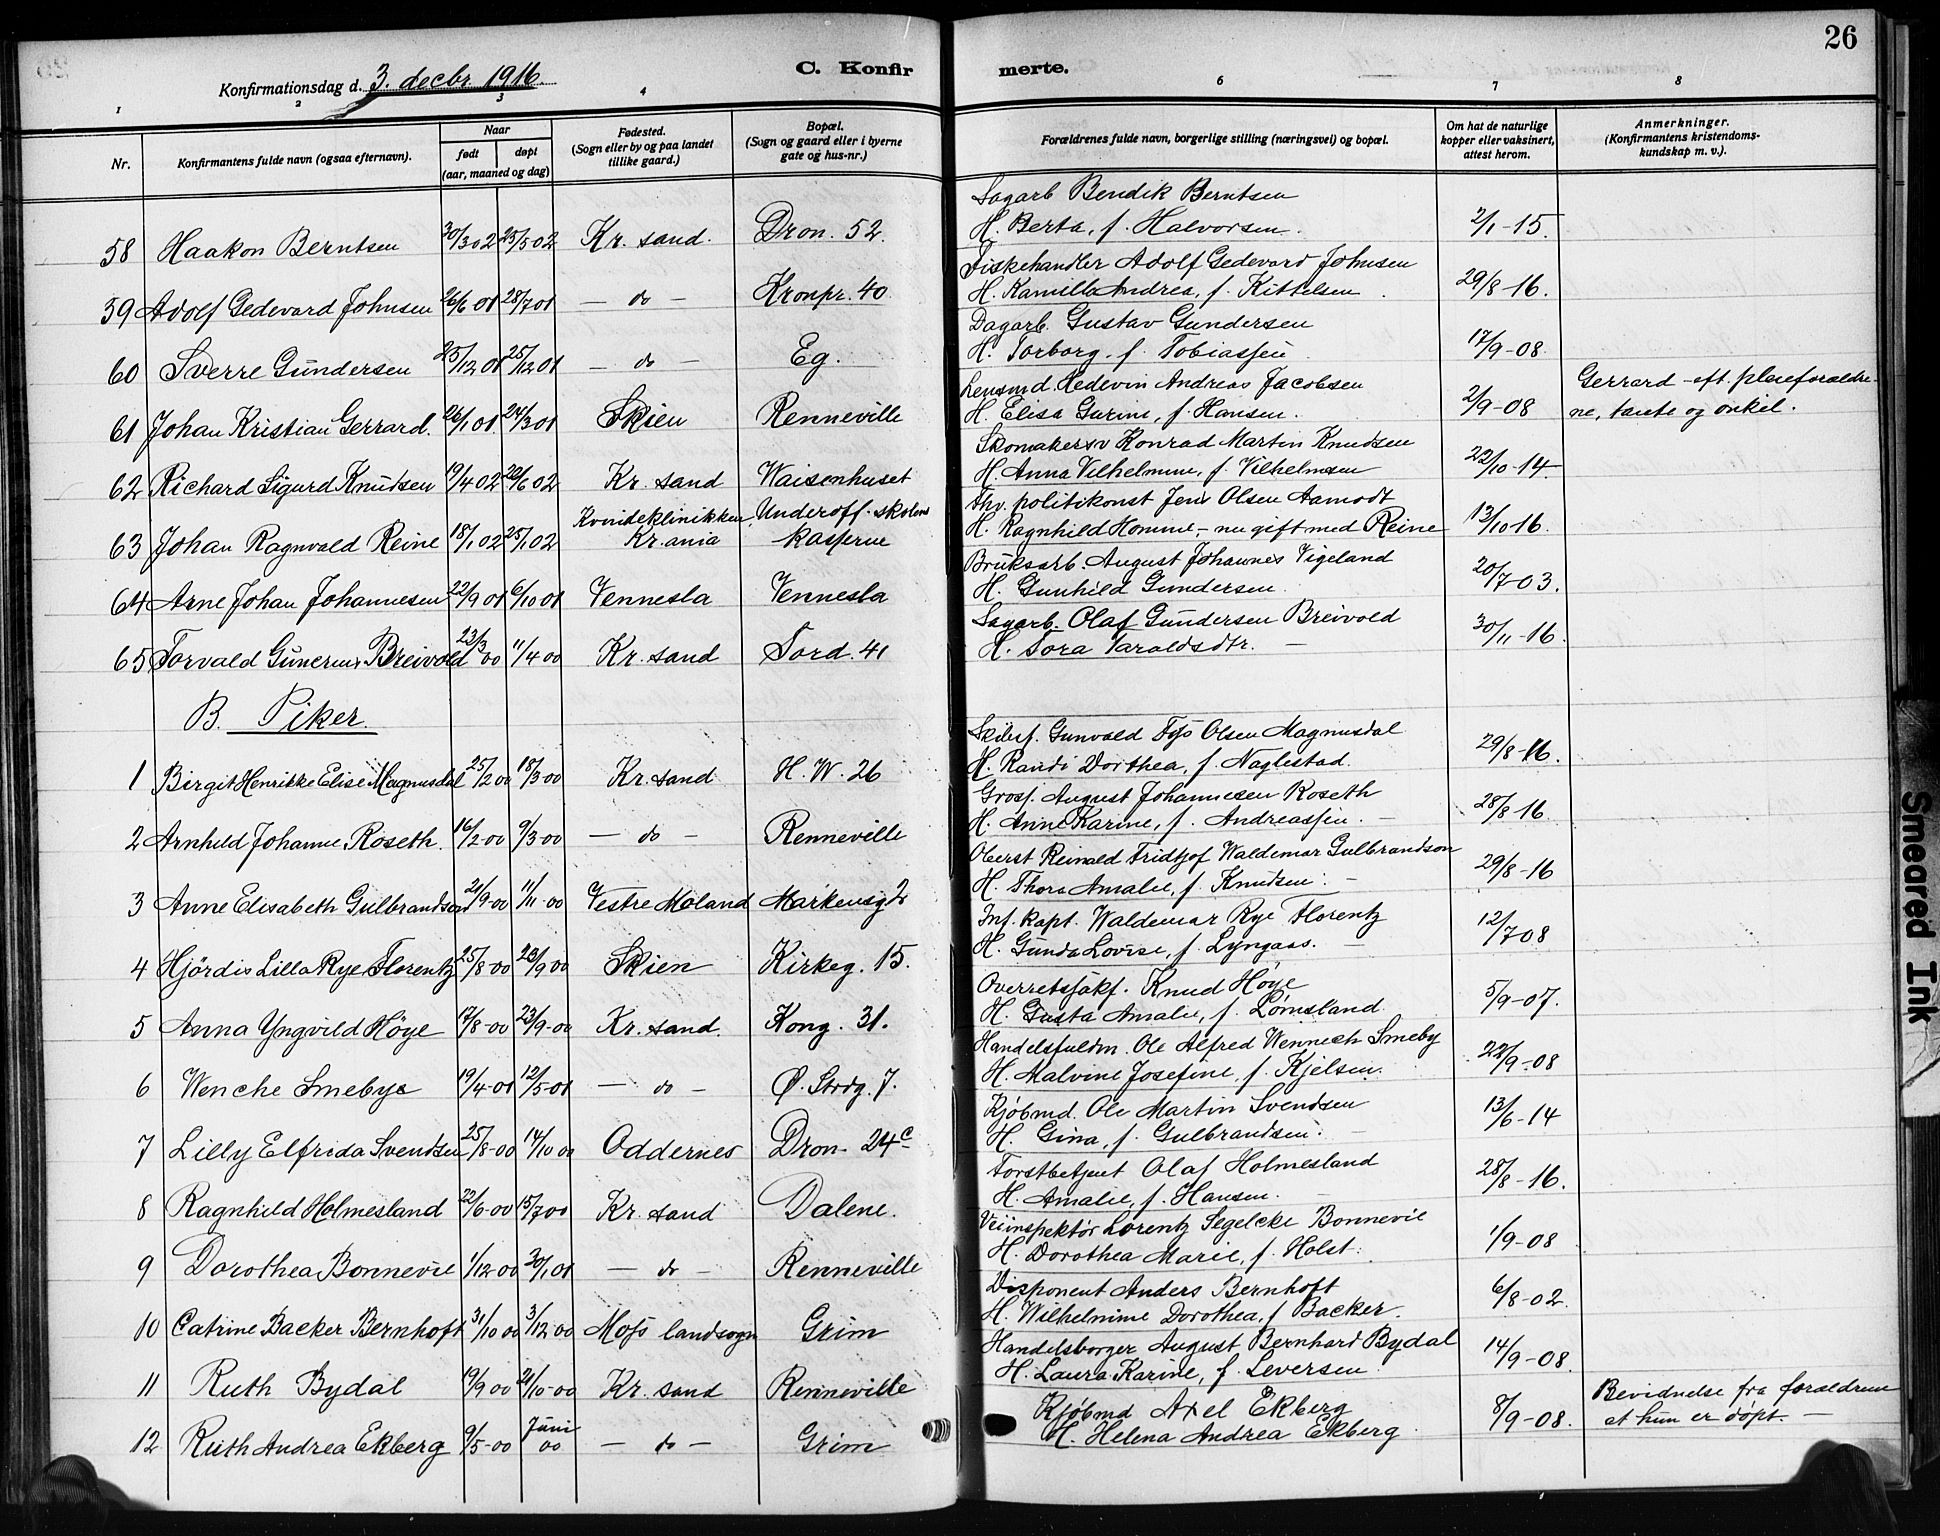 26
Konfirmationsdag d. 3. decbr. 1916.
C. Konfirmerte.
1 2 3 4 6 7 8
Nr.
Konfirmantens fulde navn (ogsaa efternavn).
Naar
født døpt
(aar, maaned og dag)
Fødested.
(Sogn eller by og paa landet
tillike gaard.)
Bopæl.
(Sogn og gaard eller i byerne
gate og hus-nr.)
Forældrenes fulde navn, borgerlige stilling (næringsvei) og bopæl.
Om hat de naturlige
kopper eller vaksinert,
attest herom.
Anmerkninger.
(Konfirmantens kristendoms-
kundskap m. v.).
Sagarb Bendik Berntsen
58 Haakon Berntsen 30/3 02 25/5 02 Kr. sand. Dron. 52. H. Berta, f. Halvorsen. 2/1-15.
Fiskehandler Adolf Gedevard Johnsen
59 Adolf Gedevard Johnsen 26/6 01 28/7 01 — do — Kronpr. 40. H. Kamilla Andrea, f. Kittelsen. 29/8-16.
Dagarb. Gustav Gundersen
60 Sverre Gundersen 25/12 01 25/12 01 — do — Eg. H. Torborg, f. Tobiassen 17/9-08.
Lensmd. Hedevin Andreas Jacobsen Gerrard - eft. pleieforældre-
61 Johan Kristian Gerrard. 26/1 01. 24/3 01 Skien Renneville H. Elisa Gurine, f. Hansen. 2/9-08 ne, tante og onkel.
Skomakersv Konrad Martin Knudsen
62 Richard Sigurd Knudsen 19/4 02 22/6 02 Kr. sand Waisenhuset H. Anna Vilhelmine, f. Vilhelmsen 22/10-14.
Kvindeklinikken Underoff. skolens Fhv. politikonst Jens Olsen Aamodt
63 Johan Ragnvald Reine 18/1 02 25/1 02 Kr.ania kaserne H. Ragnhild Homme - nu gift med Reine 13/10-16.
Bruksarb. August Johannes Vigeland
64 Arne Johan Johannesen 22/9 01 6/10 01 Vennesla Vennesla H. Gunhild Gundersen. 20/7 03.
Sagarb. Olaf Gundersen Breivold
65 Torvald Gunerius Breivold 23/3 00 11/4 00 Kr. sand Tord. 41 H. Tora Taraldsdtr. — 30/11-16.
B. Piker.
Skibsf. Gunvald Fys Olsen Magnusdal
1 Birgit Henrikke Elise Magnusdal 25/2 00 18/3 00 Kr. sand H. W. 26 H. Randi Dorthea, f. Naglestad. 29/8-16.
Gross. August Johannesen Roseth
2 Arnhild Johanne Roseth. 16/2-00 9/3-00 — do — Renneville H. Anne Karine, f. Andreassen. — 28/8-16
Oberst Reinald Fridtjof Waldemar Gulbrandson
3 Anne Elisabeth Gulbrandson 20/9-00 11/11-00 Vestre Moland Markensg 2 H. Thora Amalie, f. Knudsen. — 29/8-16
Inf. kapt. Waldemar Rye Florentz
4 Hjördis Lilla Rye Florentz 25/8-00 23/9 00 Skien Kirkeg. 15. H. Gunda Lovise, f. Lyngaas. — 12/7 08
Overretssakf. Knud Høye
5 Anna Yngvild Høye 17/8-00 23/9-00 Kr. sand. Kong. 31. H. Gusta Amalie, f. Lømsland. 5/9-07.
Handelsfuldm. Ole Alfred Wennech Smeby
6 Wenche Smebye 19/4-01 12/5-01 — do — Ø. Strdg. 7. H. Malvine Josefine, f. Kjelsen. 22/9-08
Kjöbmd. Ole Martin Svendsen
7 Lilly Elfrida Svendsen 25/8-00 14/10 00 Oddernes Dron. 24c H. Gina, f. Gulbrandsen. — 13/6-14
Forstbetjent Olaf Holmesland
8 Ragnhild Holmesland 22/6-00 15/7 00 Kr. sand Dalene. H. Amalie, f. Hansen. — 28/8-16.
Veiinspektör Lorentz Segelcke Bonnevie
9 Dorothea Bonnevie 1/12-00 20/1 01 — do — Renneville H. Dorothea Marie, f. Holst. 1/9-08
Disponent Anders Bernhoft
10 Catrine Backer Bernhoft 31/10 00 3/12 00 Moss landsogn Grim H. Wilhelmine Dorothea, f Backer. 6/8-02.
Handelsborger August Bernhard Bydal
11 Ruth Bydal 19/9 00 21/10-00 Kr. sand Renneville H. Laura Karine, f. Seversen 14/9-08.
Kjöbmd Axel Ekberg Bevidnelse fra forældrene
12 Ruth Andrea Ekberg 9/5-00 Juni 00 — do — Grim H. Helena Andrea Ekberg 8/9-08. at hun er døpt. —
Smeared Ink